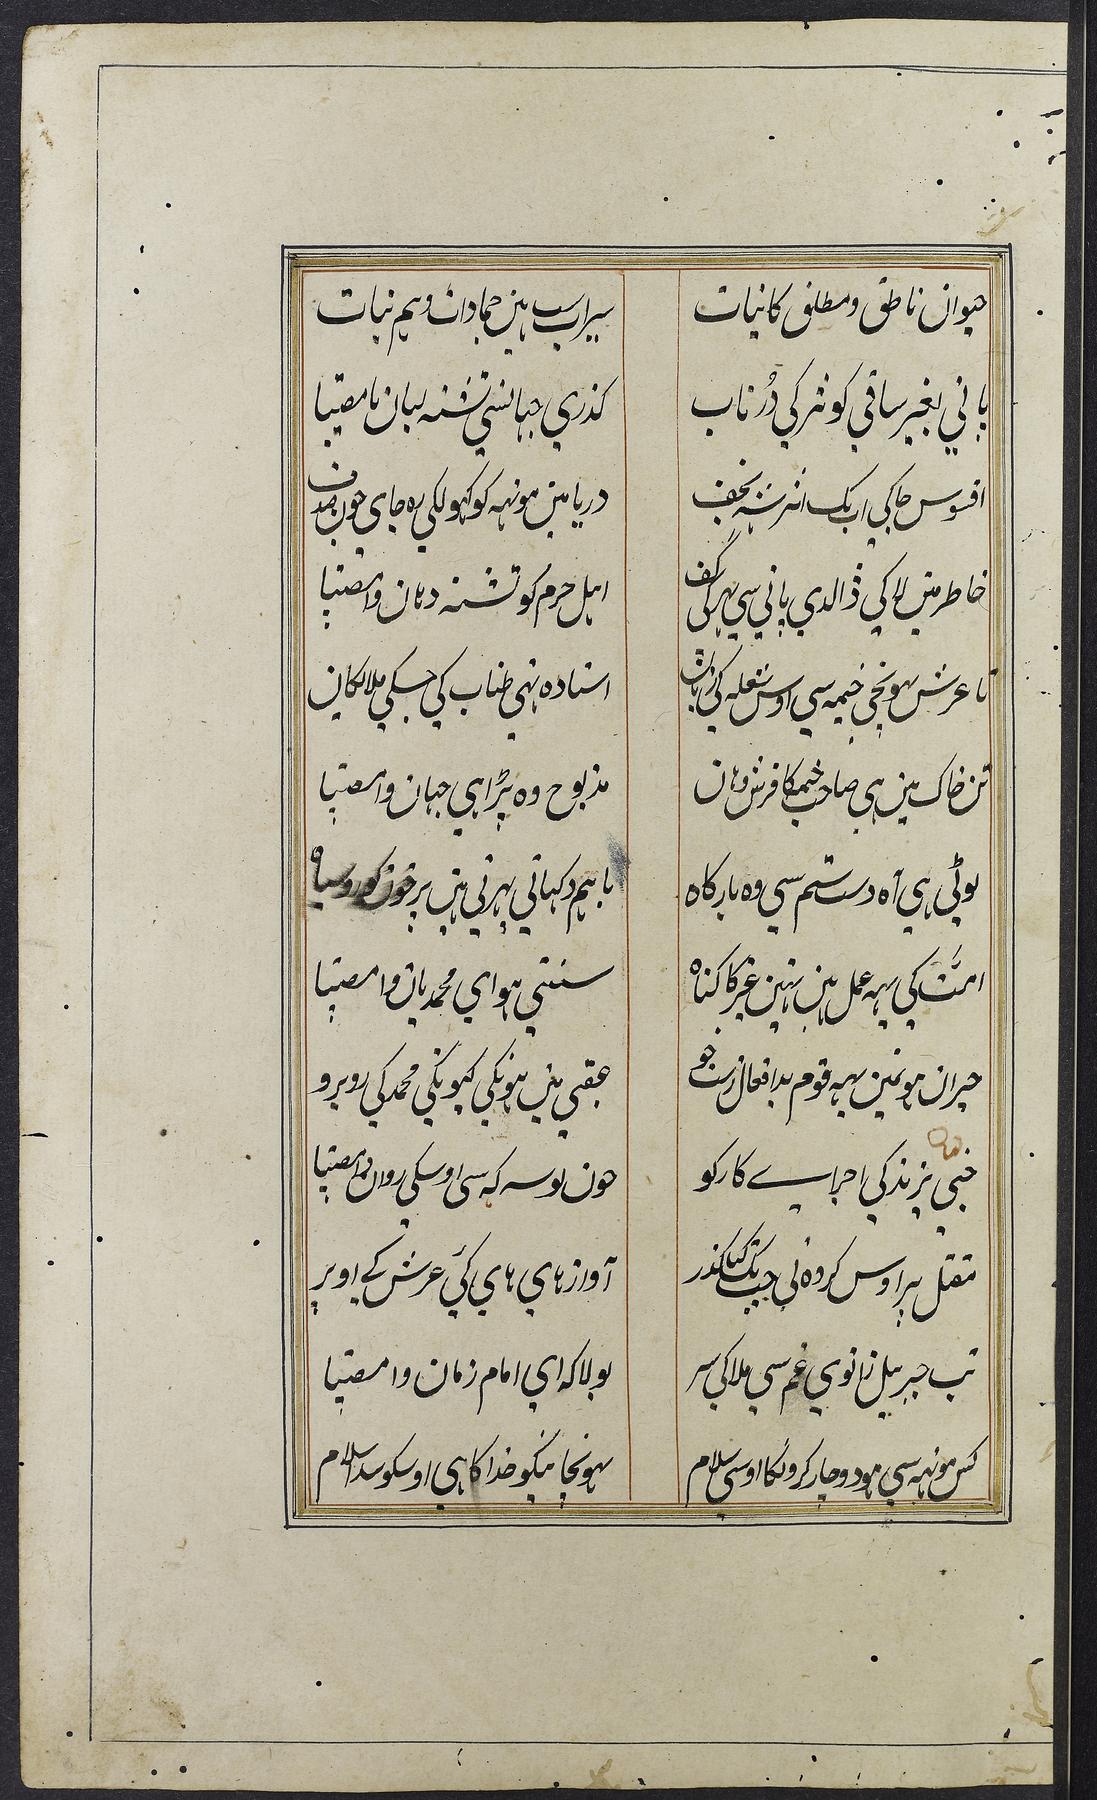 حیوان ناطق و مطلق کاینات
سیراب سب ہین جمادات و ہم نبات
پانی بغیر ساقی کوثر کی دُر ناب
کذری جہانسی تشنہ لبان وامصیبتا
افسوس جاکی اب تک اندر شہ نجف
دریا مین مونہہ کو کہولکی رہ جای جون صدف
خاطر مین لا کی ذالدی پانی سی بہر کی کف
اہل حرم کو تشنہ دہان وامصیبتا
تا عرش پہونچی خیمہ سی اوس شعلہ کی زبان
استادہ تہی طناب کی جسکی ملائکان
تن خاک مین ہی صاحب خیمہ کا فرش وہان
مذبوح وہ پڑا ہی جہان وامصیبتا
لوٹی ہی آہ دست ستم سی وہ بارکاہ
باہم دکہاتی پہرتی ہین پر خون کو روسیاہ
امتّ کی یہہ عمل ہین نہین غیر کا کناہ
سنتی ہو ای محمدیان وامصیبتا
حیران ہون مین یہہ قوم بد افعال زشت خو
عقبی مین ہونکی کیونکی محمد کی روبرو
کار کو
خون لوسہ کہ سی اوسکی روان وامصیبتا
مقتل پر اوس کروہ نی جب تک کیا کذر
آواز ہای ہای کئی عرش کے اوپر
تب جبرییل زانوی غم سی ملا کی سر
بولا کہ ای امام زمان وامصیبتا
کس مونہہ سی ہو دوچار کرونکا اوسی سلام
پہونچا منکو خدا کا ہی اوسکو سدا سلام